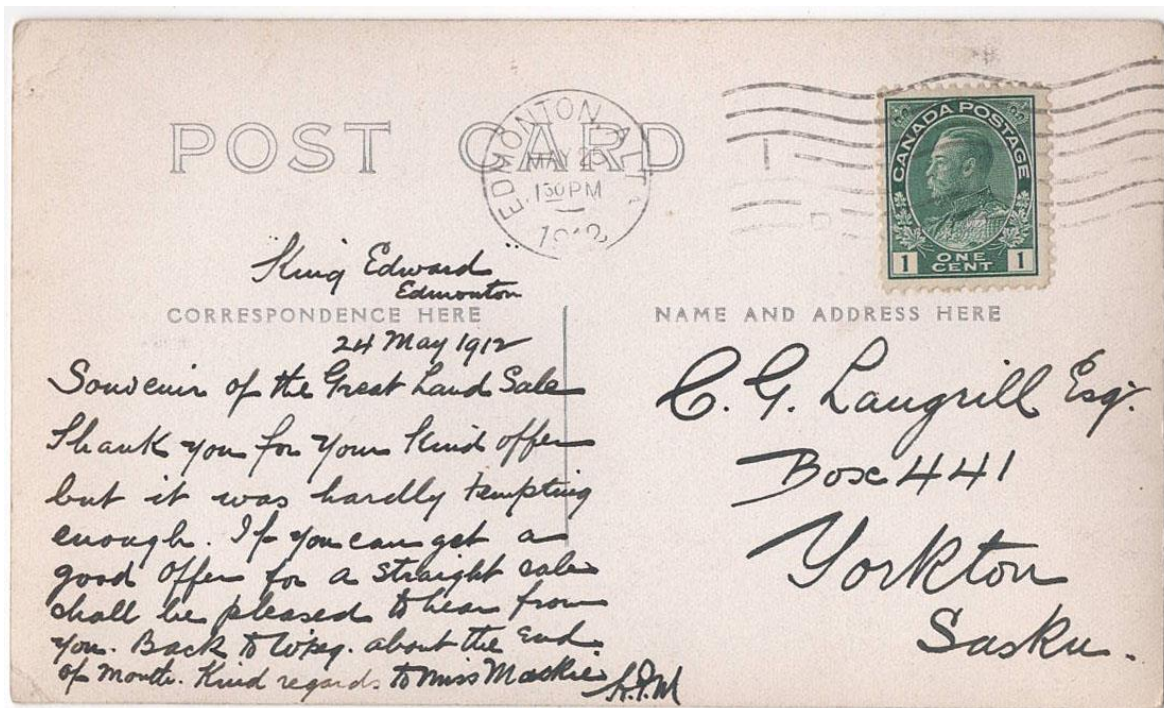 POST CARD
EDMONTON ALTA
MAY 25
1 30 PM
1912
CANADA POSTAGE
1 ONE CENT 1
King Edward
Edmonton
CORRESPONDENCE HERE
24 May 1912
Souvenir of the Great Land Sale
Thank you for your kind offer
but it was hardly tempting
enough. If you can get a
good offer for a straight sale
shall be pleased to hear from
you. Back to W'peg. about the End
of month. Kind regards to Miss Mackie
NAME AND ADDRESS HERE
C. G. Langrill Esq.
Box 441
Yorkton
Sask.